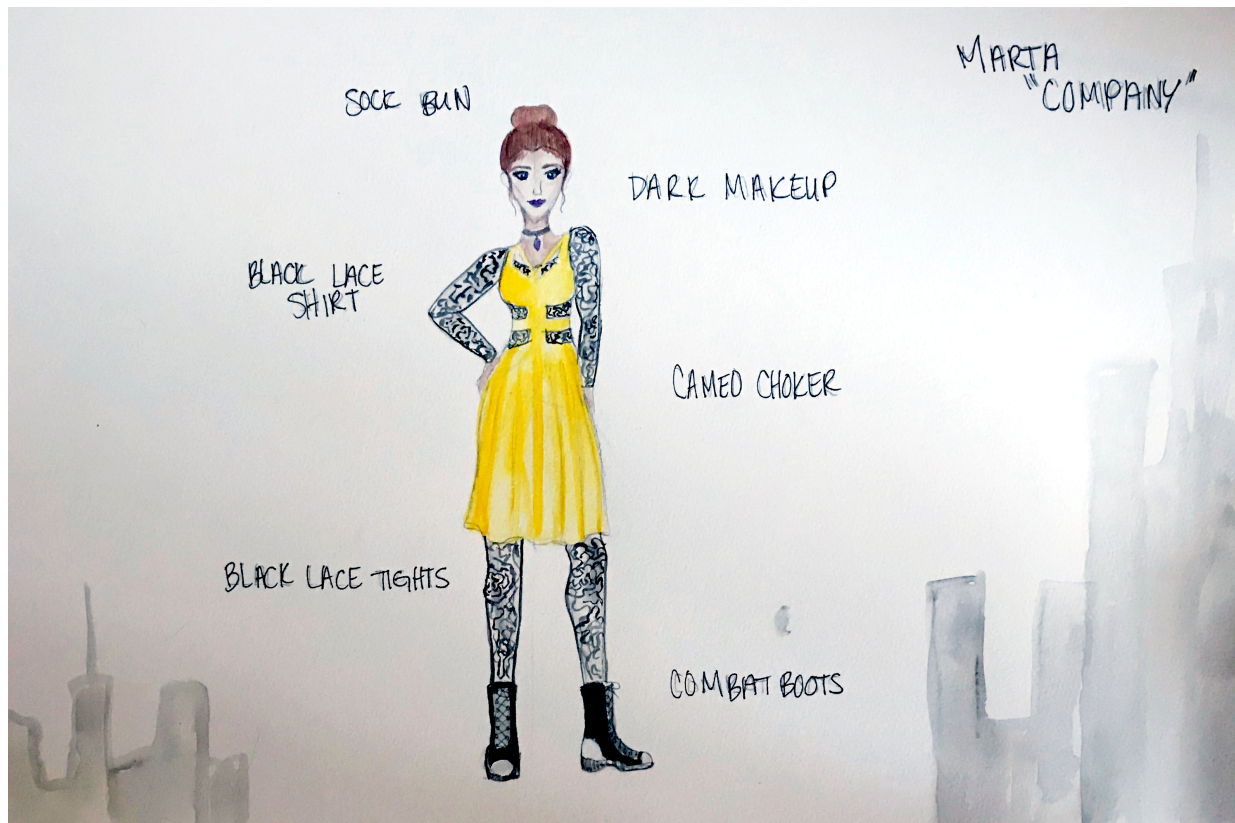 MARTA
"COMPANY"
SOCK BUN
DARK MAKEUP
BLACK LACE
SHIRT
CAMEO CHOKER
BLACK LACE TIGHTS
COMBAT BOOTS